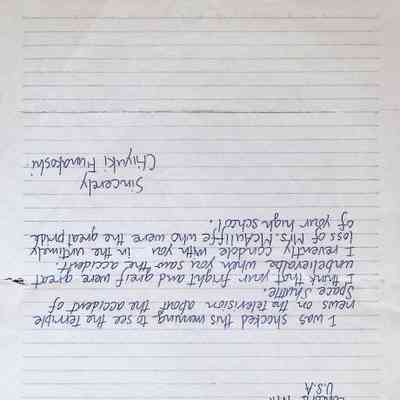 U.S.A
I was shocked this morning to see the terrible
news on the television about the accident of
Space Shuttle.
I think that your fright and greif were great
unbelievable when you saw the accident.
I reverently condole with you in the untimely
loss of Mrs. McAuliffe who were the great pride
of your high school.
Sincerely
Chiyuki Funakoshi